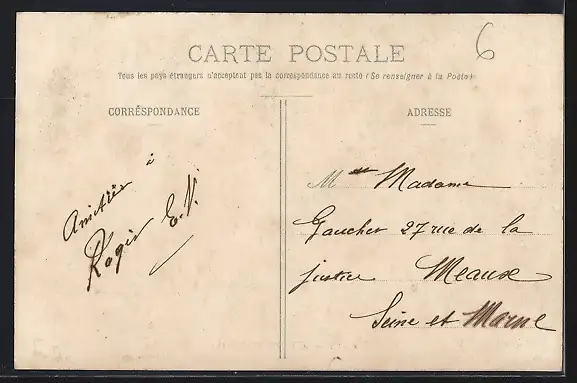 6
CARTE POSTALE
Tous les pays étrangers n'acceptent pas la correspondance au recto (Se renseigner à la Poste)
CORRÉSPONDANCE
ADRESSE
Amitiés à
Roger E.V.
M Madame
Gaucher 27 rue de la
justice Meaux
Seine et Marne